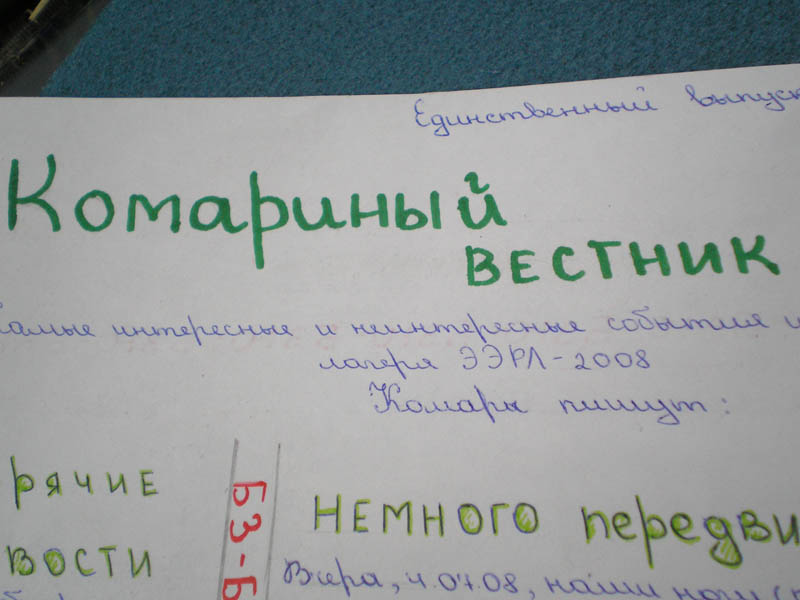 Единственный выпуск
Комариный
вестник
самые интересные и неинтересные события и
лагеря ЭЭРЛ-2008
Комары пишут:
рячие
вости
БЗ-Б
Немного передви
Вчера, 4.07.08, наши